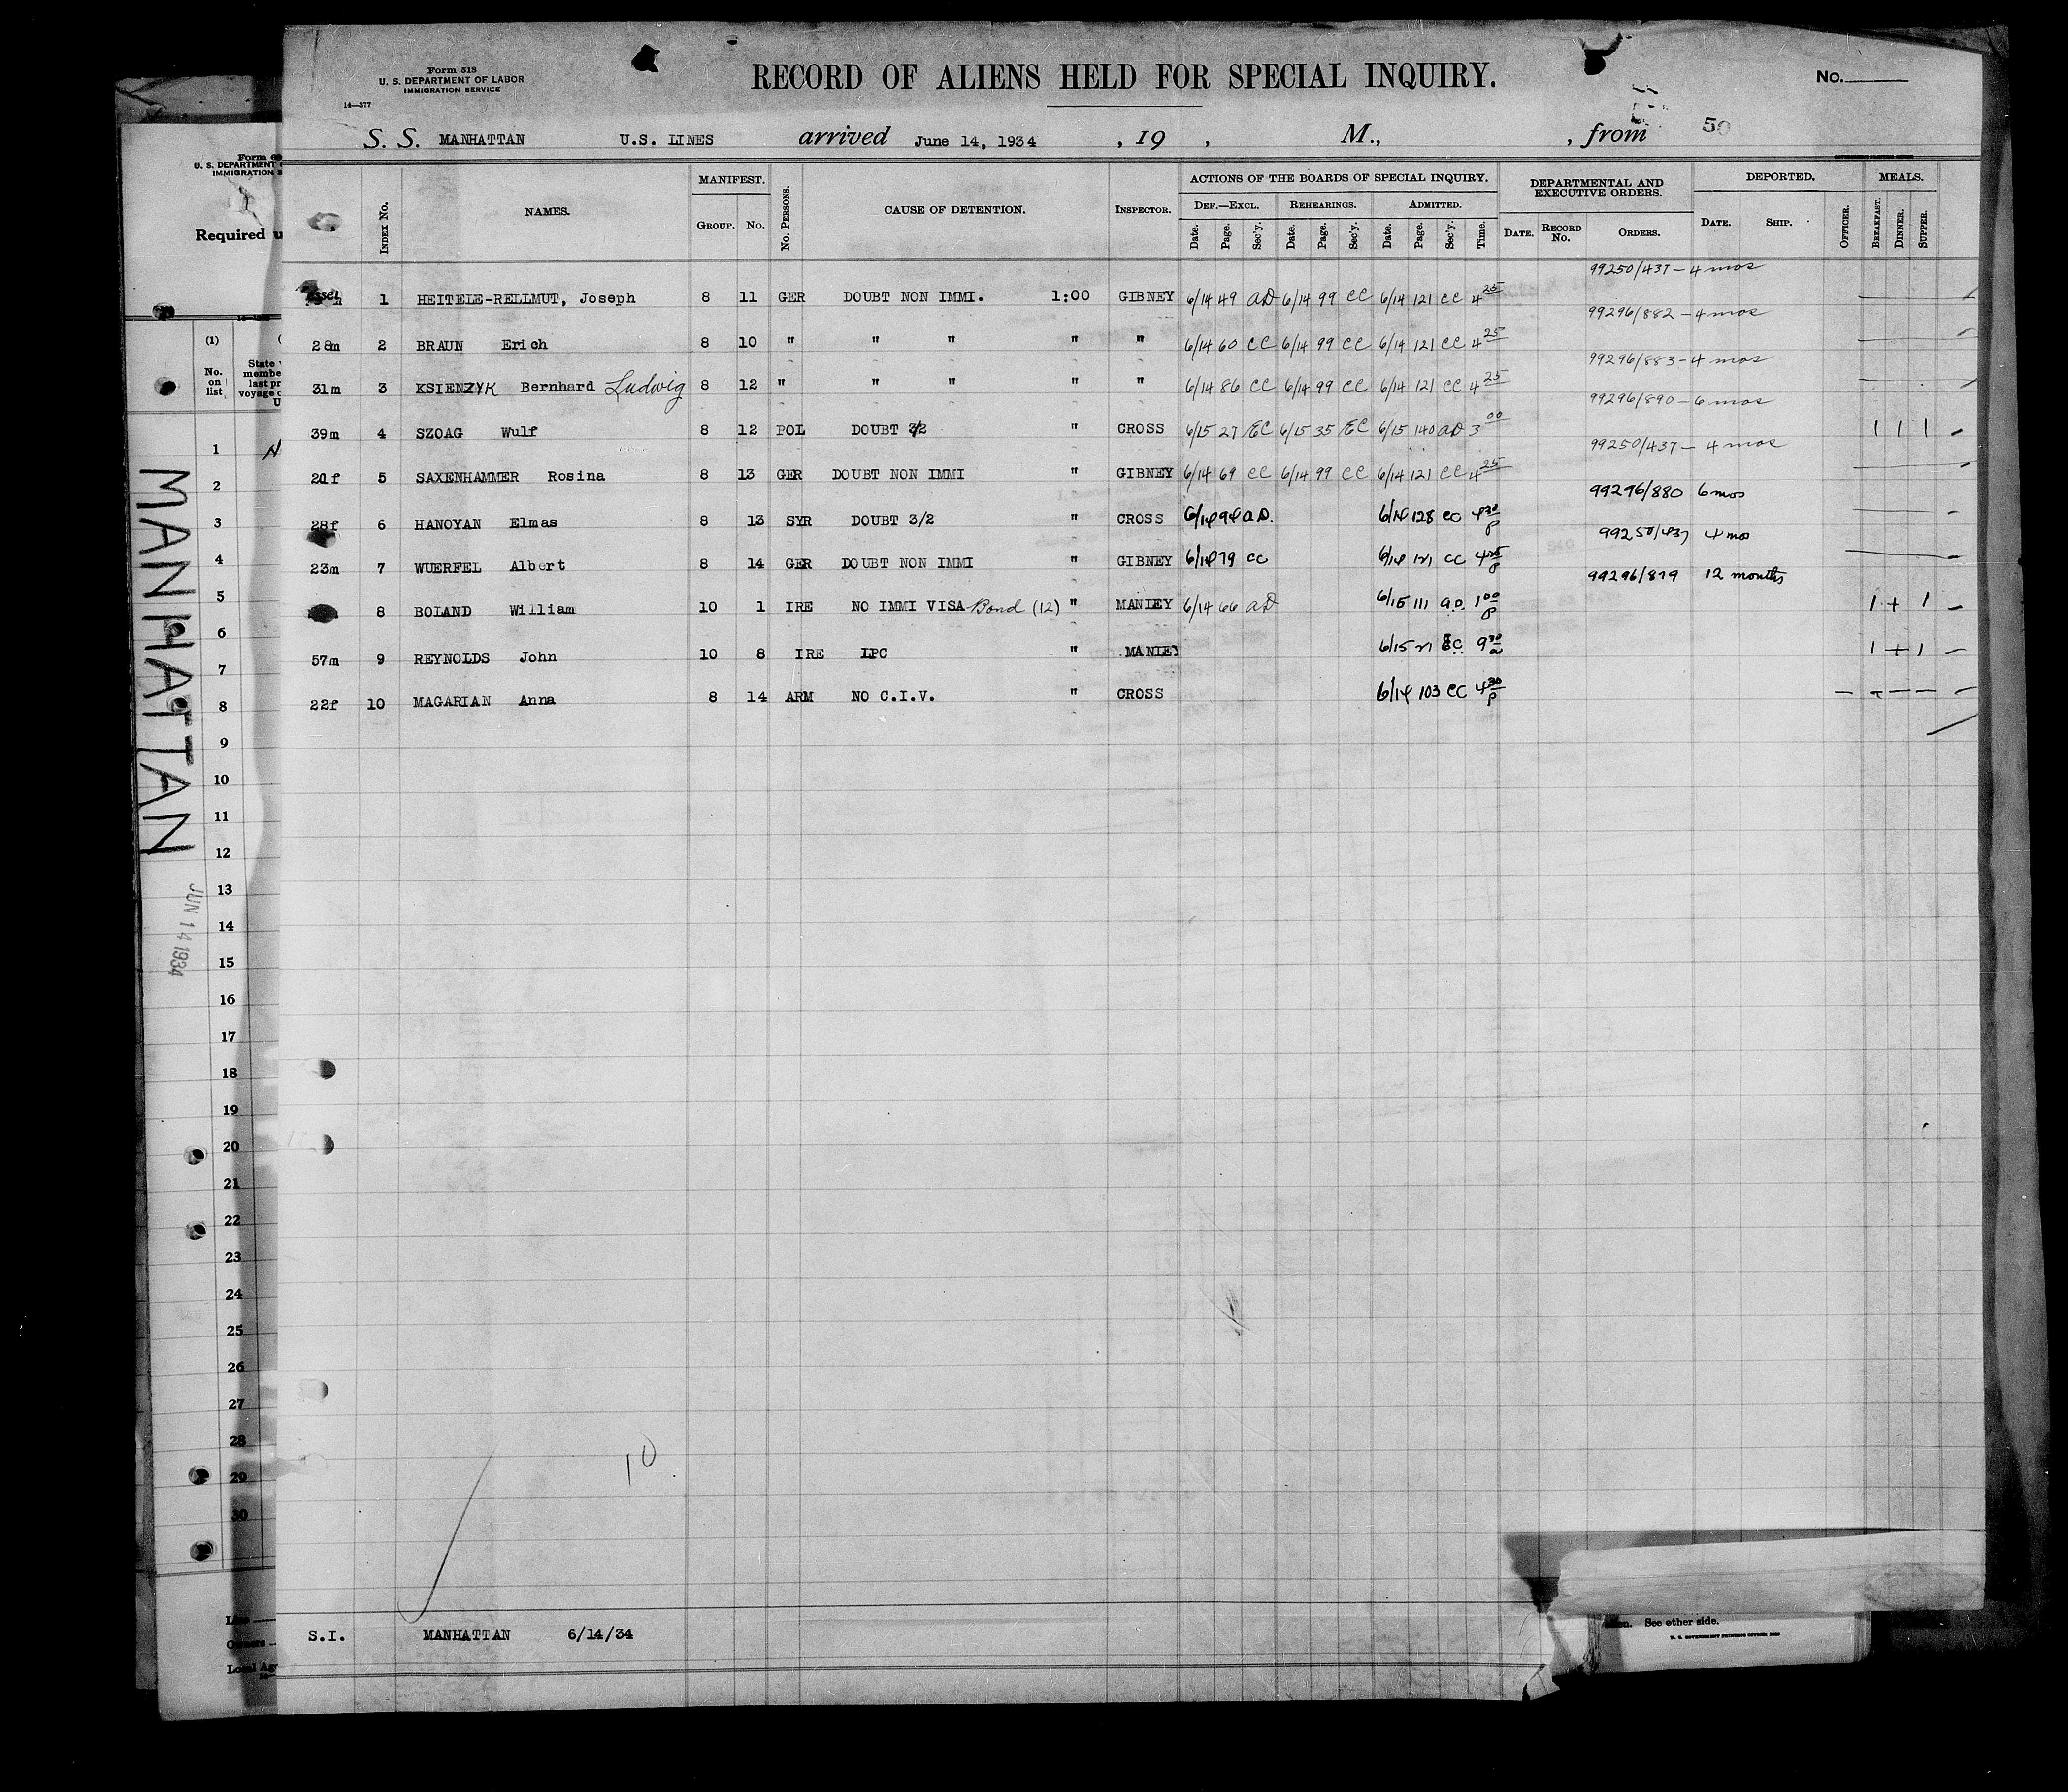 Form 518
U. S. DEPARTMENT OF LABOR
IMMIGRATION SERVICE
14—377
RECORD OF ALIENS HELD FOR SPECIAL INQUIRY.
No.
S. S. MANHATTAN U.S. LINES arrived June 14, 1934 , 19 , M., , from 50
INDEX No. NAMES. MANIFEST. GROUP. No. No. PERSONS. CAUSE OF DETENTION. INSPECTOR. ACTIONS OF THE BOARDS OF SPECIAL INQUIRY. DEPARTMENTAL AND EXECUTIVE ORDERS. DEPORTED. MEALS.
DEF.—EXCL. REHEARINGS. ADMITTED.
Date. Page. Sec'y. Date. Page. Sec'y. Date. Page. Sec'y. Time. DATE. RECORD No. ORDERS. DATE. SHIP. OFFICER. BREAKFAST. DINNER. SUPPER.
99250/437 - 4 mos
1 HEITELE-RELLMUT, Joseph 8 11 GER DOUBT NON IMMI. 1:00 GIBNEY 6/14 49 AD 6/14 99 CC 6/14 121 CC 4 25
99296/882 - 4 mos
28m 2 BRAUN Erich 8 10 " " " " " 6/14 60 CC 6/14 99 CC 6/14 121 CC 4 25
99296/883 - 4 mos
31m 3 KSIENZYK Bernhard Ludwig 8 12 " " " " " 6/14 86 CC 6/14 99 CC 6/14 121 CC 4 25
99296/890 - 6 mos
39m 4 SZOAG Wulf 8 12 POL DOUBT 3/2 " CROSS 6/15 27 EC 6/15 35 EC 6/15 140 AD 3 00 1 1 1
99250/437 - 4 mos
21f 5 SAXENHAMMER Rosina 8 13 GER DOUBT NON IMMI " GIBNEY 6/14 69 CC 6/14 99 CC 6/14 121 CC 4 25
99296/880 6 mos
28f 6 HANOYAN Elmas 8 13 SYR DOUBT 3/2 " CROSS 6/14 94 A.D. 6/14 128 CC 4 30 p
99250/437 4 mos
23m 7 WUERFEL Albert 8 14 GER DOUBT NON IMMI " GIBNEY 6/14 79 CC 6/14 121 CC 4 25 p
99296/879 12 months
8 BOLAND William 10 1 IRE NO IMMI VISA Bond (12) " MANLEY 6/14 66 AD 6/15 111 A.D. 1 00 p 1 + 1
57m 9 REYNOLDS John 10 8 IRE LPC " MANLEY 6/15 21 EC. 9 30 a 1 + 1
22f 10 MAGARIAN Anna 8 14 ARM NO C.I.V. " CROSS 6/14 103 CC 4 30 p
10
S.I. MANHATTAN 6/14/34
U. S. DEPARTMENT
IMMIGRATION
Required
(1)
No. on list
1
2
3
4
5
6
7
8
9
10
11
12
13
14
15
16
17
18
19
20
21
22
23
24
25
26
27
28
29
30
MANHATTAN
JUN 14 1934
See other side.
U. S. GOVERNMENT PRINTING OFFICE